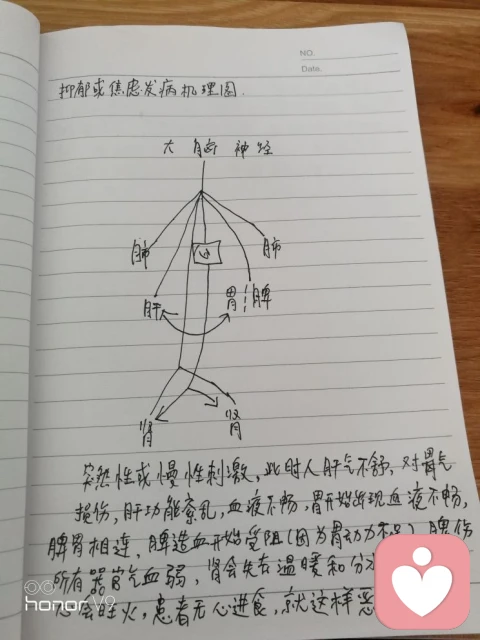 NO.
Date.
抑郁或焦虑发病机理图.
大脑神经
肺 肺
心
肝 胃 脾
肾 肾
突然性或慢性刺激,此时人肝气不舒,对胃气
损伤,肝功能紊乱,血液不畅,胃开始出现血液不畅,
脾胃相连,脾造血开始受阻(因为胃动力不足)脾伤
所有器官气血弱,肾会失去温暖和分
会旺火,患者无心进食,就这样恶
honor V9